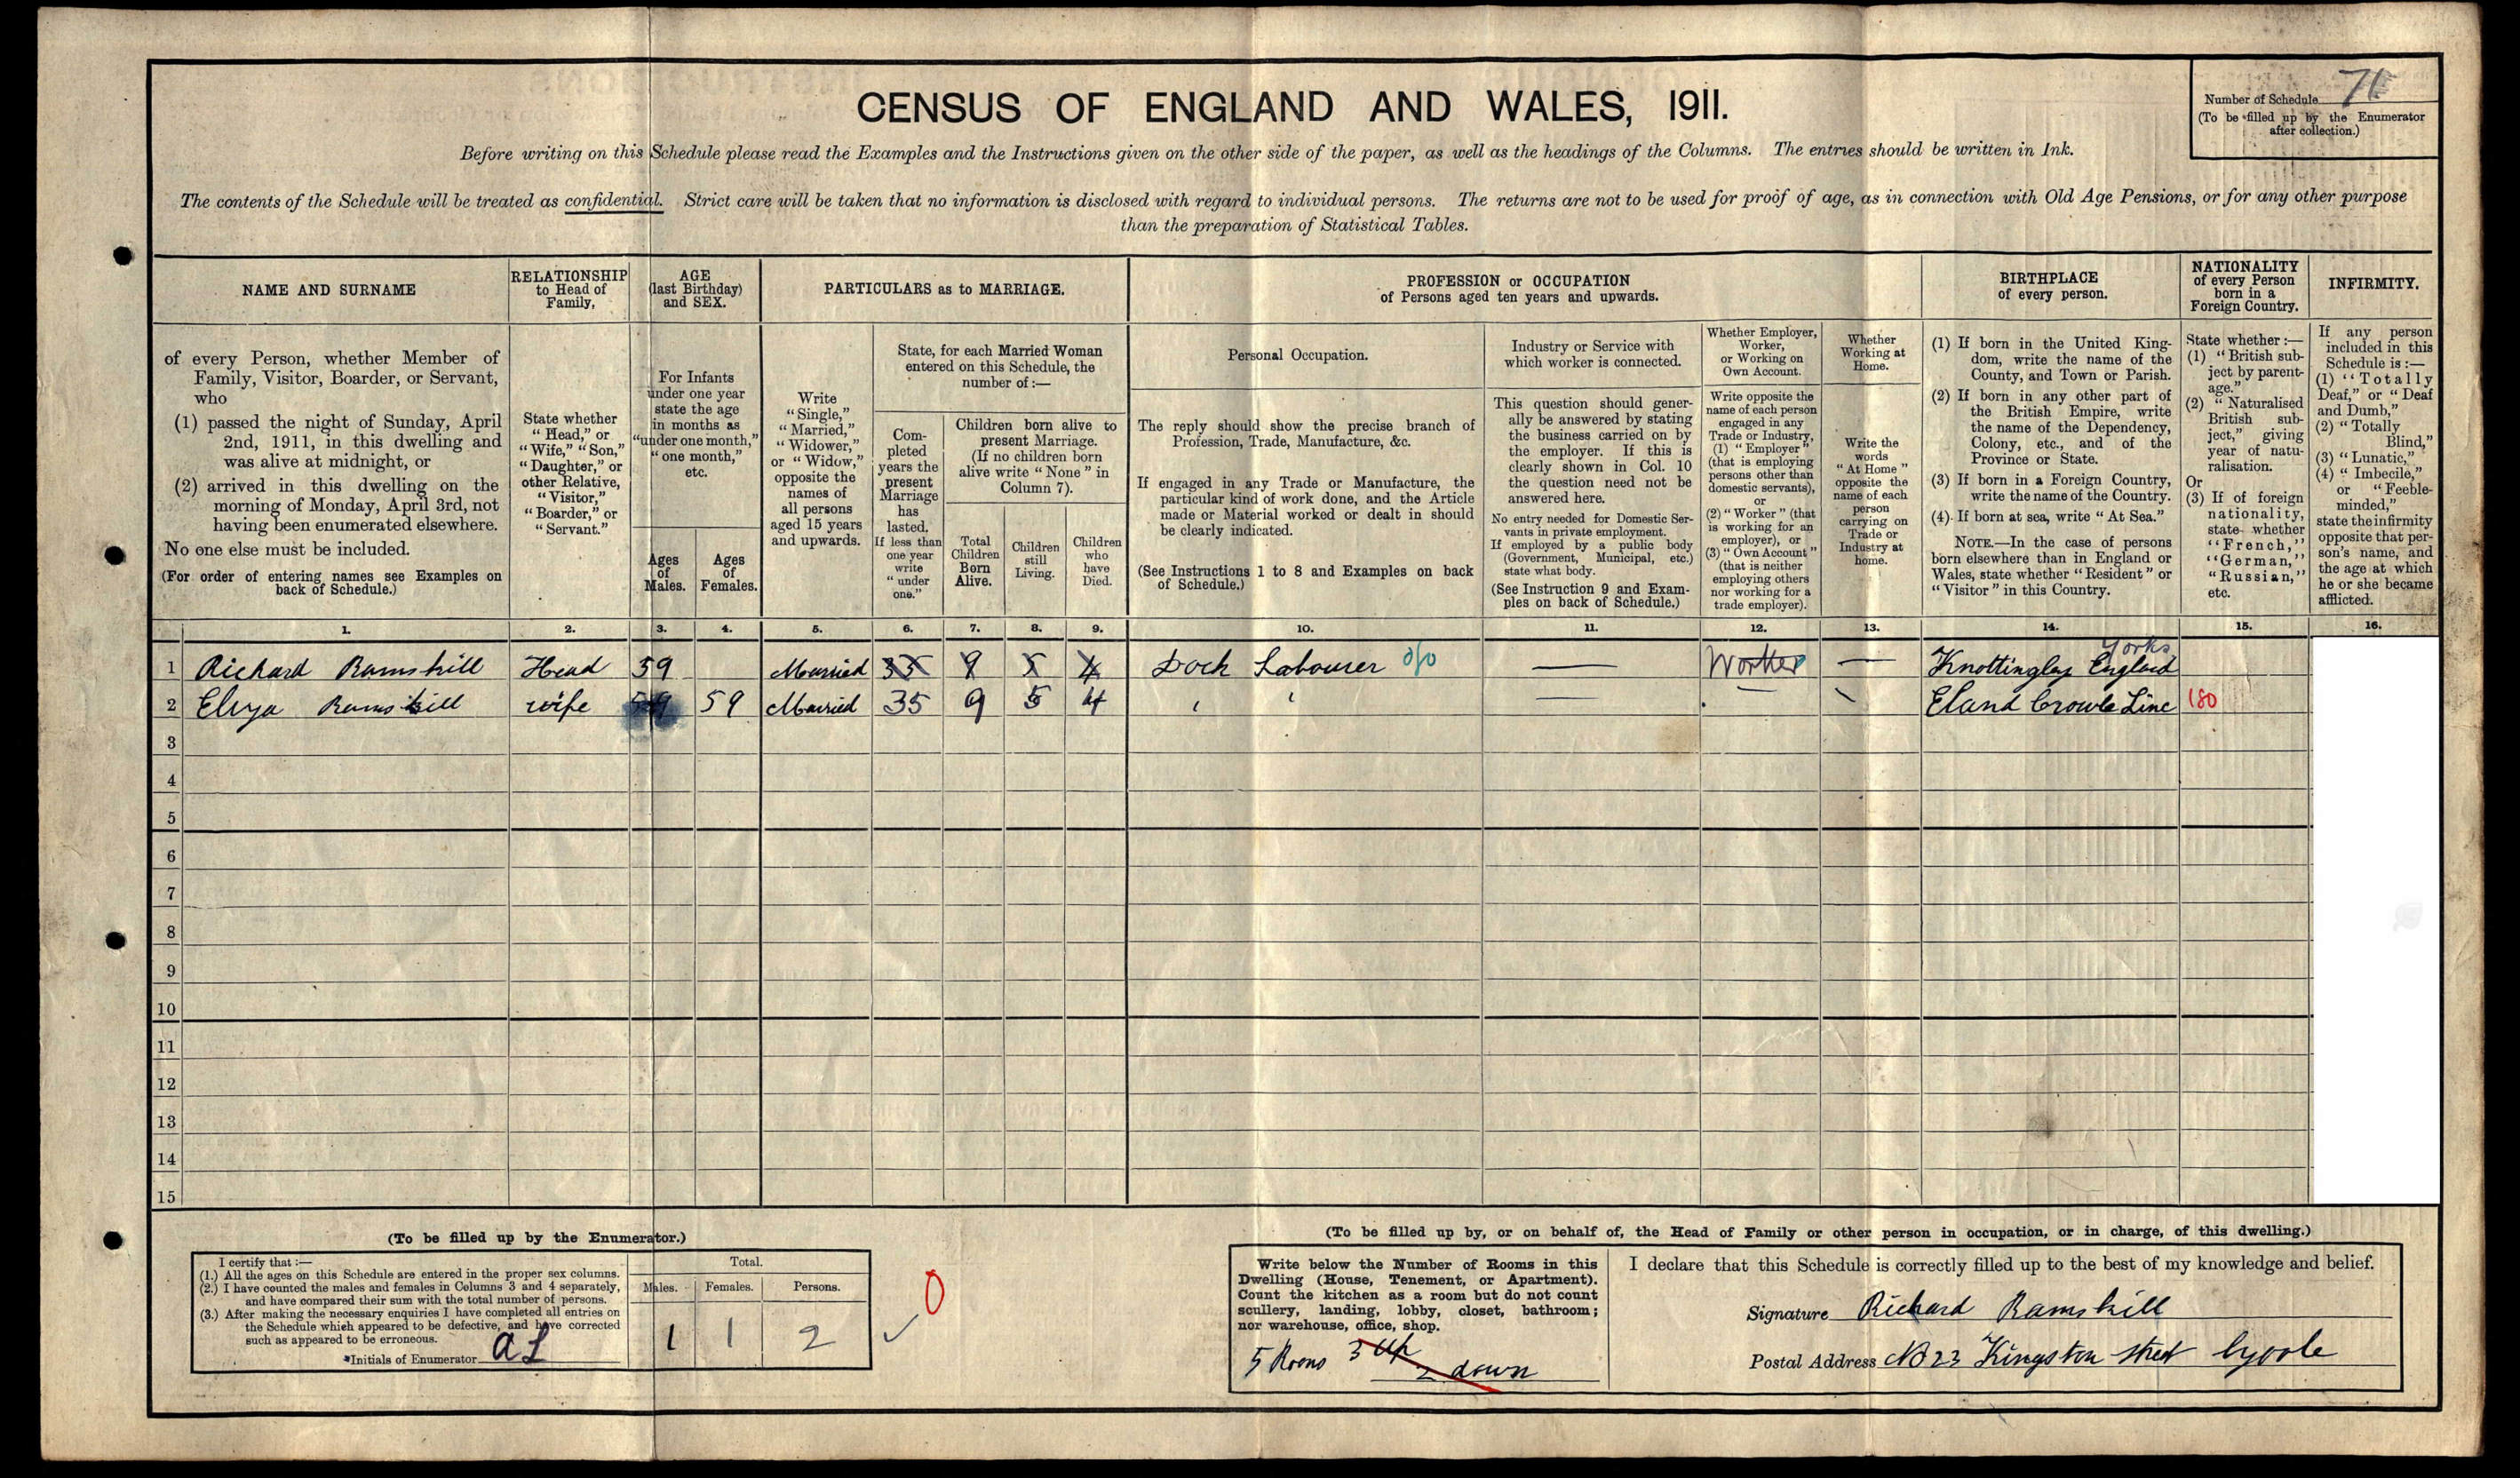 CENSUS OF ENGLAND AND WALES, 1911.
Number of Schedule 71
(To be filled up by the Enumerator
after collection.)
Before writing on this Schedule please read the Examples and the Instructions given on the other side of the paper, as well as the headings of the Columns. The entries should be written in Ink.
The contents of the Schedule will be treated as confidential. Strict care will be taken that no information is disclosed with regard to individual persons. The returns are not to be used for proof of age, as in connection with Old Age Pensions, or for any other purpose
than the preparation of Statistical Tables.
NAME AND SURNAME
of every Person, whether Member of
Family, Visitor, Boarder, or Servant,
who
(1) passed the night of Sunday, April
2nd, 1911, in this dwelling and
was alive at midnight, or
(2) arrived in this dwelling on the
morning of Monday, April 3rd, not
having been enumerated elsewhere.
No one else must be included.
(For order of entering names see Examples on
back of Schedule.)
RELATIONSHIP
to Head of
Family,
State whether
"Head," or
"Wife," "Son,"
"Daughter," or
other Relative,
"Visitor,"
"Boarder," or
"Servant."
AGE
(last Birthday)
and SEX.
For Infants
under one year
state the age
in months as
"under one month,"
"one month,"
etc.
Ages
of
Males.
Ages
of
Females.
PARTICULARS as to MARRIAGE.
Write
"Single,"
"Married,"
"Widower,"
or "Widow,"
opposite the
names of
all persons
aged 15 years
and upwards.
State, for each Married Woman
entered on this Schedule, the
number of:—
Com-
pleted
years the
present
Marriage
has
lasted.
If less than
one year
write
"under
one."
Children born alive to
present Marriage.
(If no children born
alive write "None" in
Column 7).
Total
Children
Born
Alive.
Children
still
Living.
Children
who
have
Died.
PROFESSION or OCCUPATION
of Persons aged ten years and upwards.
Personal Occupation.
The reply should show the precise branch of
Profession, Trade, Manufacture, &c.
If engaged in any Trade or Manufacture, the
particular kind of work done, and the Article
made or Material worked or dealt in should
be clearly indicated.
(See Instructions 1 to 8 and Examples on back
of Schedule.)
Industry or Service with
which worker is connected.
This question should gener-
ally be answered by stating
the business carried on by
the employer. If this is
clearly shown in Col. 10
the question need not be
answered here.
No entry needed for Domestic Ser-
vants in private employment.
If employed by a public body
(Government, Municipal, etc.)
state what body.
(See Instruction 9 and Exam-
ples on back of Schedule.)
Whether Employer,
Worker,
or Working on
Own Account.
Write opposite the
name of each person
engaged in any
Trade or Industry,
(1) "Employer"
(that is employing
persons other than
domestic servants),
or
(2) "Worker" (that
is working for an
employer), or
(3) "Own Account"
(that is neither
employing others
nor working for a
trade employer).
Whether
Working at
Home.
Write the
words
"At Home"
opposite the
name of each
person
carrying on
Trade or
Industry at
home.
BIRTHPLACE
of every person.
(1) If born in the United King-
dom, write the name of the
County, and Town or Parish.
(2) If born in any other part of
the British Empire, write
the name of the Dependency,
Colony, etc., and of the
Province or State.
(3) If born in a Foreign Country,
write the name of the Country.
(4) If born at sea, write "At Sea."
NOTE.—In the case of persons
born elsewhere than in England or
Wales, state whether "Resident" or
"Visitor" in this Country.
NATIONALITY
of every Person
born in a
Foreign Country.
State whether :—
(1) "British sub-
ject by parent-
age."
(2) "Naturalised
British sub-
ject," giving
year of natu-
ralisation.
Or
(3) If of foreign
nationality,
state whether
"French,"
"German,"
"Russian,"
etc.
INFIRMITY.
If any person
included in this
Schedule is :—
(1) "Totally
Deaf," or "Deaf
and Dumb,"
(2) "Totally
Blind,"
(3) "Lunatic,"
(4) "Imbecile,"
or "Feeble-
minded,"
state the infirmity
opposite that per-
son's name, and
the age at which
he or she became
afflicted.
1. 2. 3. 4. 5. 6. 7. 8. 9. 10. 11. 12. 13. 14. 15. 16.
Yorks
1 Richard Ramskill Head 59 Married 35 9 5 4 Dock Labourer Worker Knottingley England
2 Eliza Ramskill wife 59 Married 35 9 5 4 Eland Crowle Linc 180
3
4
5
6
7
8
9
10
11
12
13
14
15
(To be filled up by the Enumerator.)
I certify that :—
(1.) All the ages on this Schedule are entered in the proper sex columns.
(2.) I have counted the males and females in Columns 3 and 4 separately,
and have compared their sum with the total number of persons.
(3.) After making the necessary enquiries I have completed all entries on
the Schedule which appeared to be defective, and have corrected
such as appeared to be erroneous.
Initials of Enumerator A L
Total.
Males. Females. Persons.
1 1 2
0
(To be filled up by, or on behalf of, the Head of Family or other person in occupation, or in charge, of this dwelling.)
Write below the Number of Rooms in this
Dwelling (House, Tenement, or Apartment).
Count the kitchen as a room but do not count
scullery, landing, lobby, closet, bathroom;
nor warehouse, office, shop.
5 Rooms 3 up
2 down
I declare that this Schedule is correctly filled up to the best of my knowledge and belief.
Signature Richard Ramskill
Postal Address No 23 Kingston street Goole